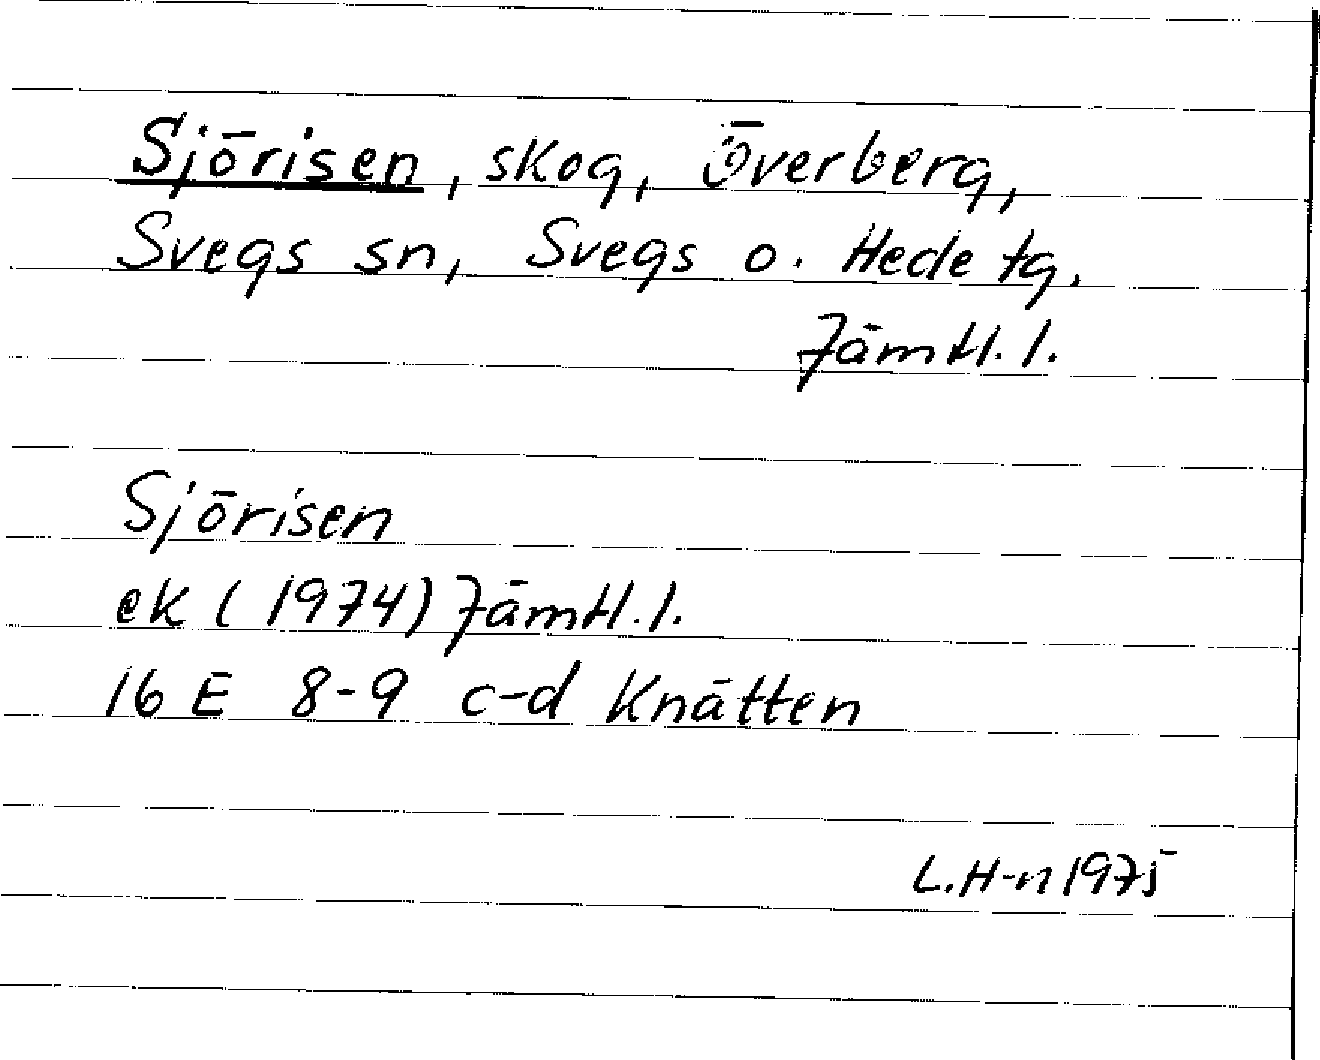 Sjörisen, skog, Överberg,
Svegs sn, Svegs o. Hede tg.
Jämtl. l.
Sjörisen
ek (1974) Jämtl. l.
16 E 8-9 c-d Knätten
L.H-n 1975